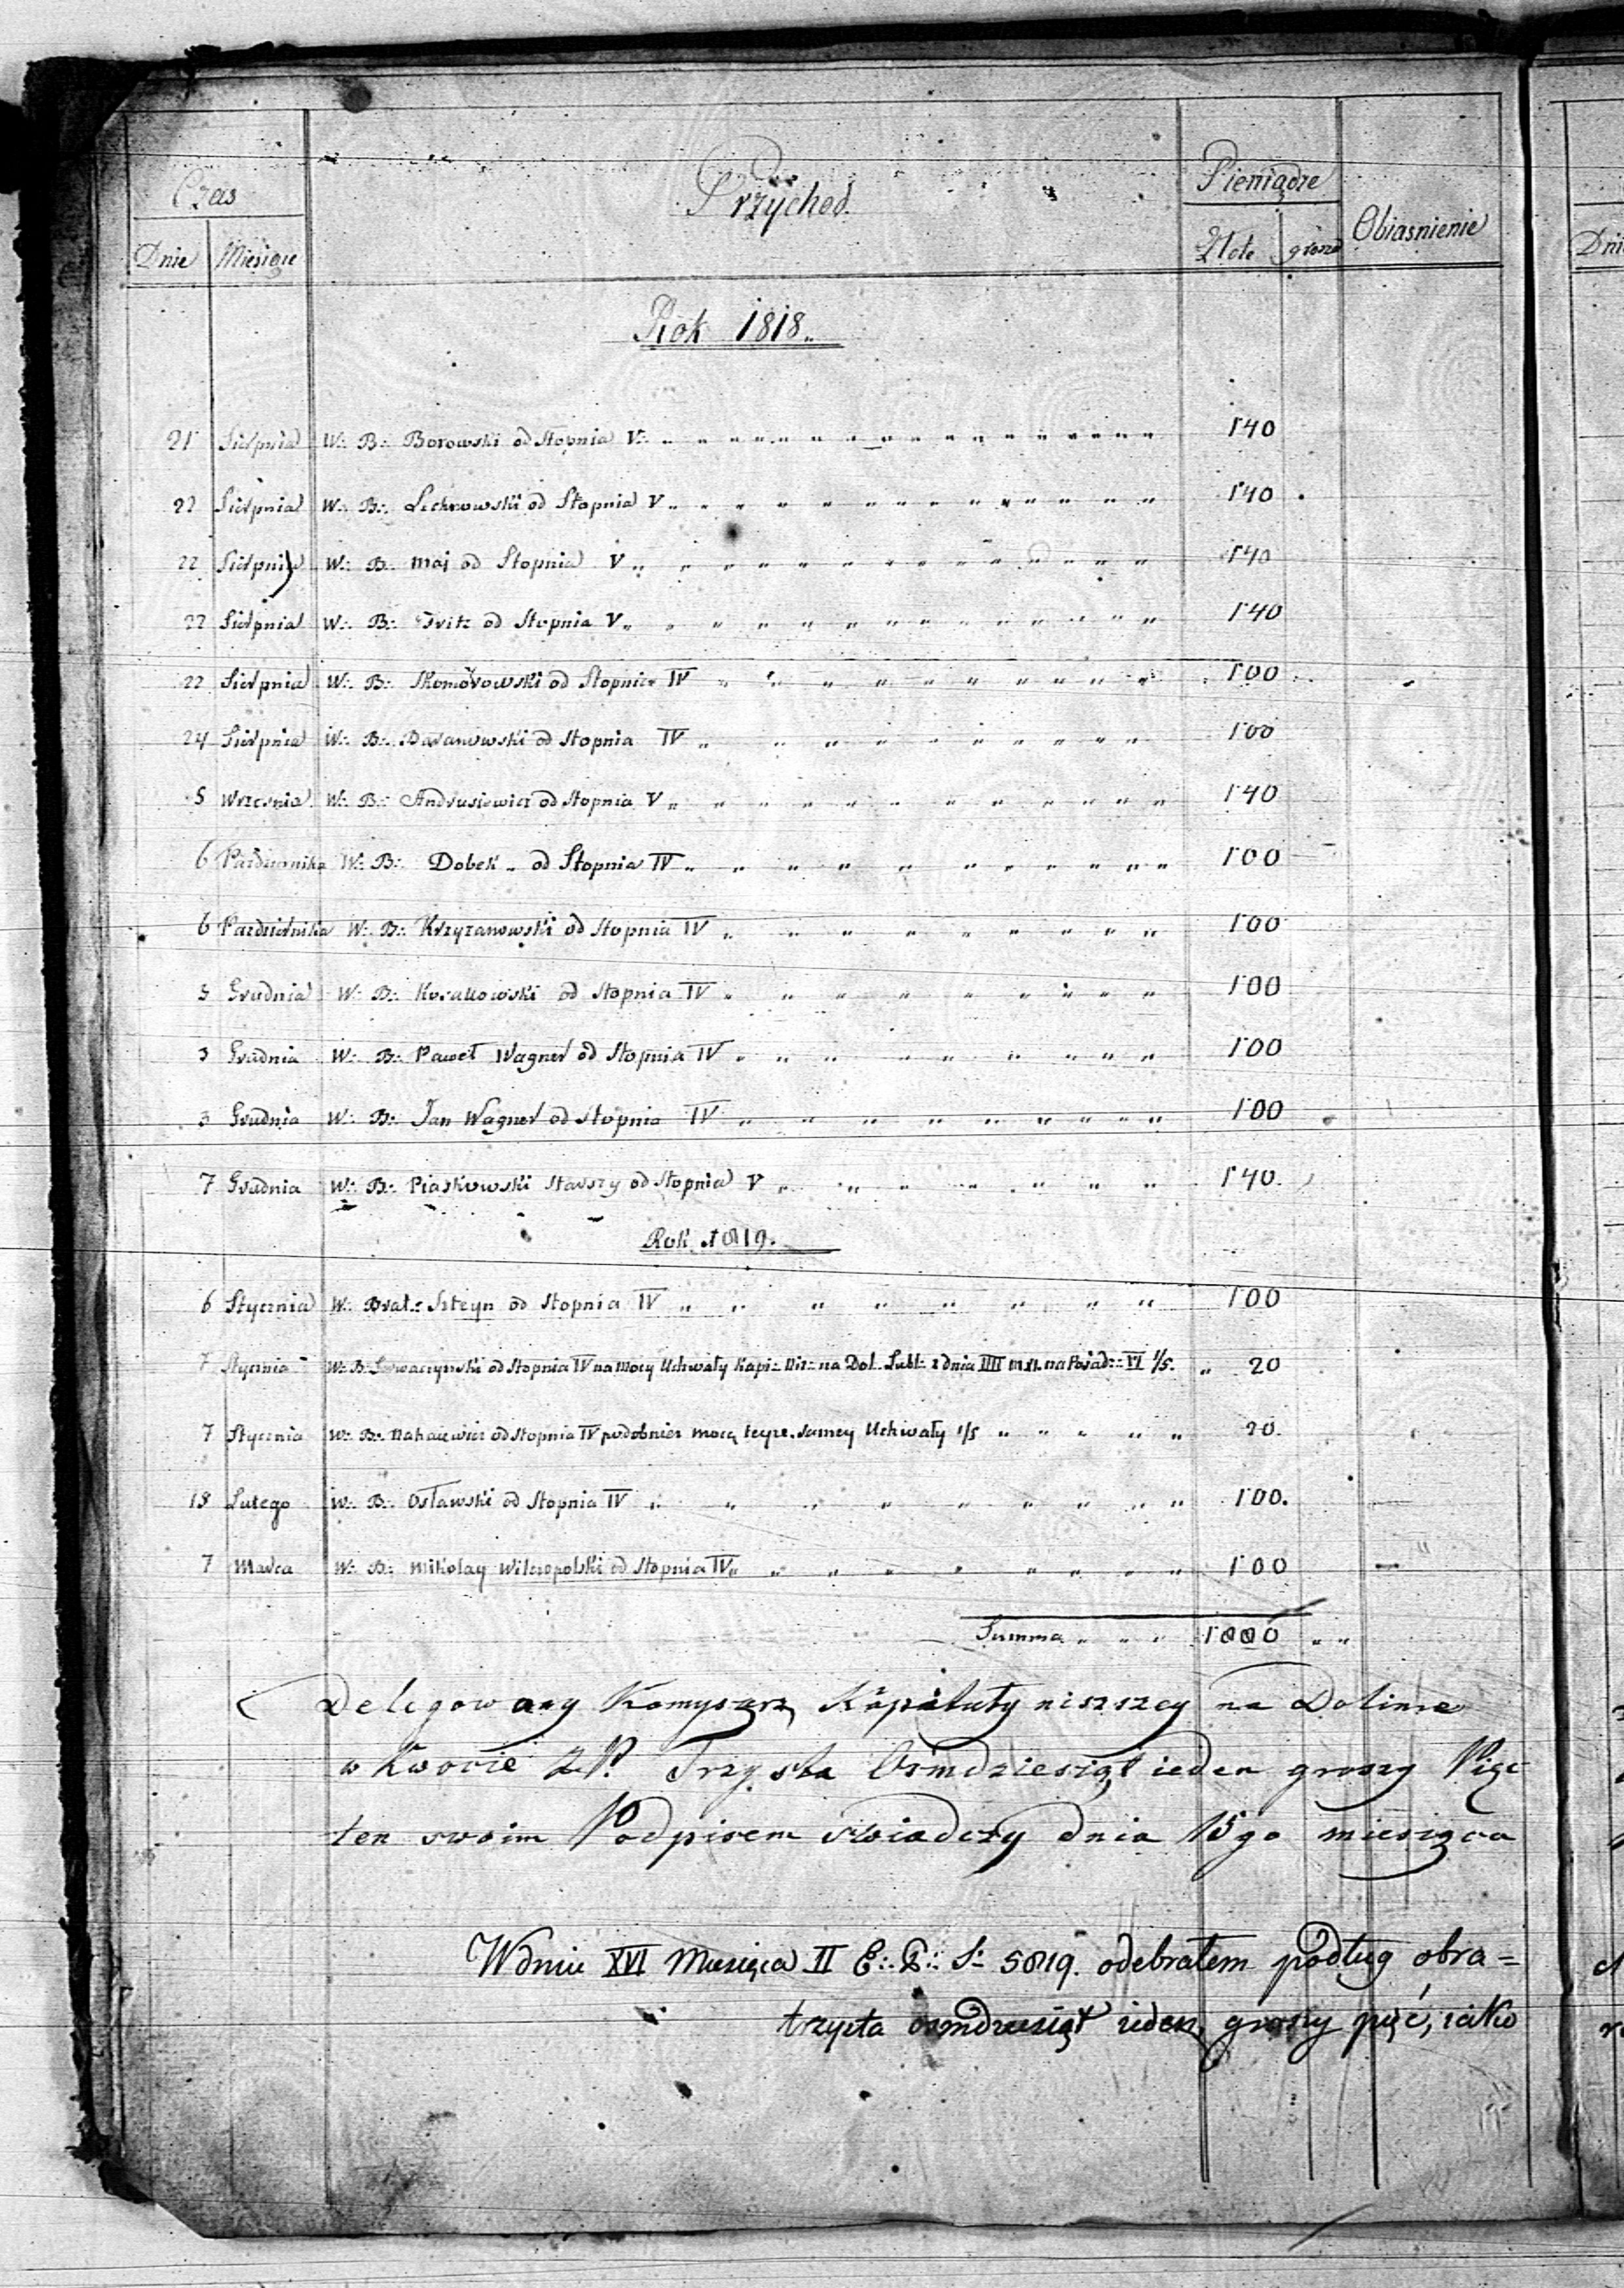 Czas Przychod Pieniądze Obiasnienie
Dnie Miesiące Złote grosze
Rok 1818.
21 Sierpnia W: B: Borowski od Stopnia V 140
22 Sierpnia W: B: od Stopnia V 140
22 Sierpnia W: B: Maj od Stopnia V 140
22 Sierpnia W: B: Fritz od Stopnia V 140
22 Sierpnia W: B: Skomorowski od Stopnia IV 100
24 Sierpnia W: B: Baranowski od Stopnia IV 100
5 Wrzesnia W: B: Andrusiewicz od Stopnia V 140
6 Pazdziernika W: B: Dobek od Stopnia IV 100
6 Pazdziernika W: B: Krzyzanowski od Stopnia IV 100
3 Grudnia W: B: od Stopnia IV 100
3 Grudnia W: B: Paweł Wagner od Stopnia IV 100
3 Grudnia W: B: Jan Wagner od Stopnia IV 100
7 Grudnia W: B: Piaskowski Starszy od Stopnia V 140
Rok 1819.
6 Stycznia W: Brat: Szteyn od Stopnia IV 100
7 Stycznia W: B: od Stopnia IV na mocy Uchwały Kapi: Niz: na Dol. Lubl: z dnia IIII na Posiad: VI 1/5. 20
7 Stycznia W: B: od Stopnia IV podobniez mocą teyze samey Uchwały 1/5 20
18 Lutego W: B: Osławski od Stopnia IV 100.
7 Marca W: B: Mikolay Wilczopolski od Stopnia IV 100
Summa 1880
Delegowany Komysarz Kapituły niszszey na Dolinie
w Kwocie Z.P. Trzysta Osmdziesiąt ieden groszy Pięc
ten swoim Podpisem swiadczy dnia 15go miesiąca
W dniu XVI Miesiąca II 5819. odebrałem podług obra=
trzysta osmdziesiąt ieden groszy pięć, iako